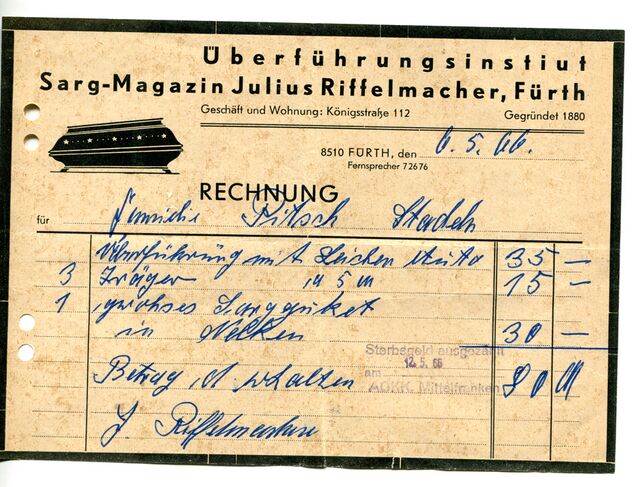 Überführungsinstiut
Sarg-Magazin Julius Riffelmacher, Fürth
Geschäft und Wohnung: Königsstraße 112
Gegründet 1880
8510 FÜRTH, den 6. 5. 66.
Fernsprecher 72676
RECHNUNG
für Familie Stadeln
Überführung mit Leichen Auto 35 —
3 Träger a 5 M 15 —
1 großes Sargbuket
in Nelken 30 —
Sterbegeld ausgezahlt
12. 5. 66
am
AOKK. Mittelfranken
Betrag d. erhalten 80 M
J. Riffelmacher